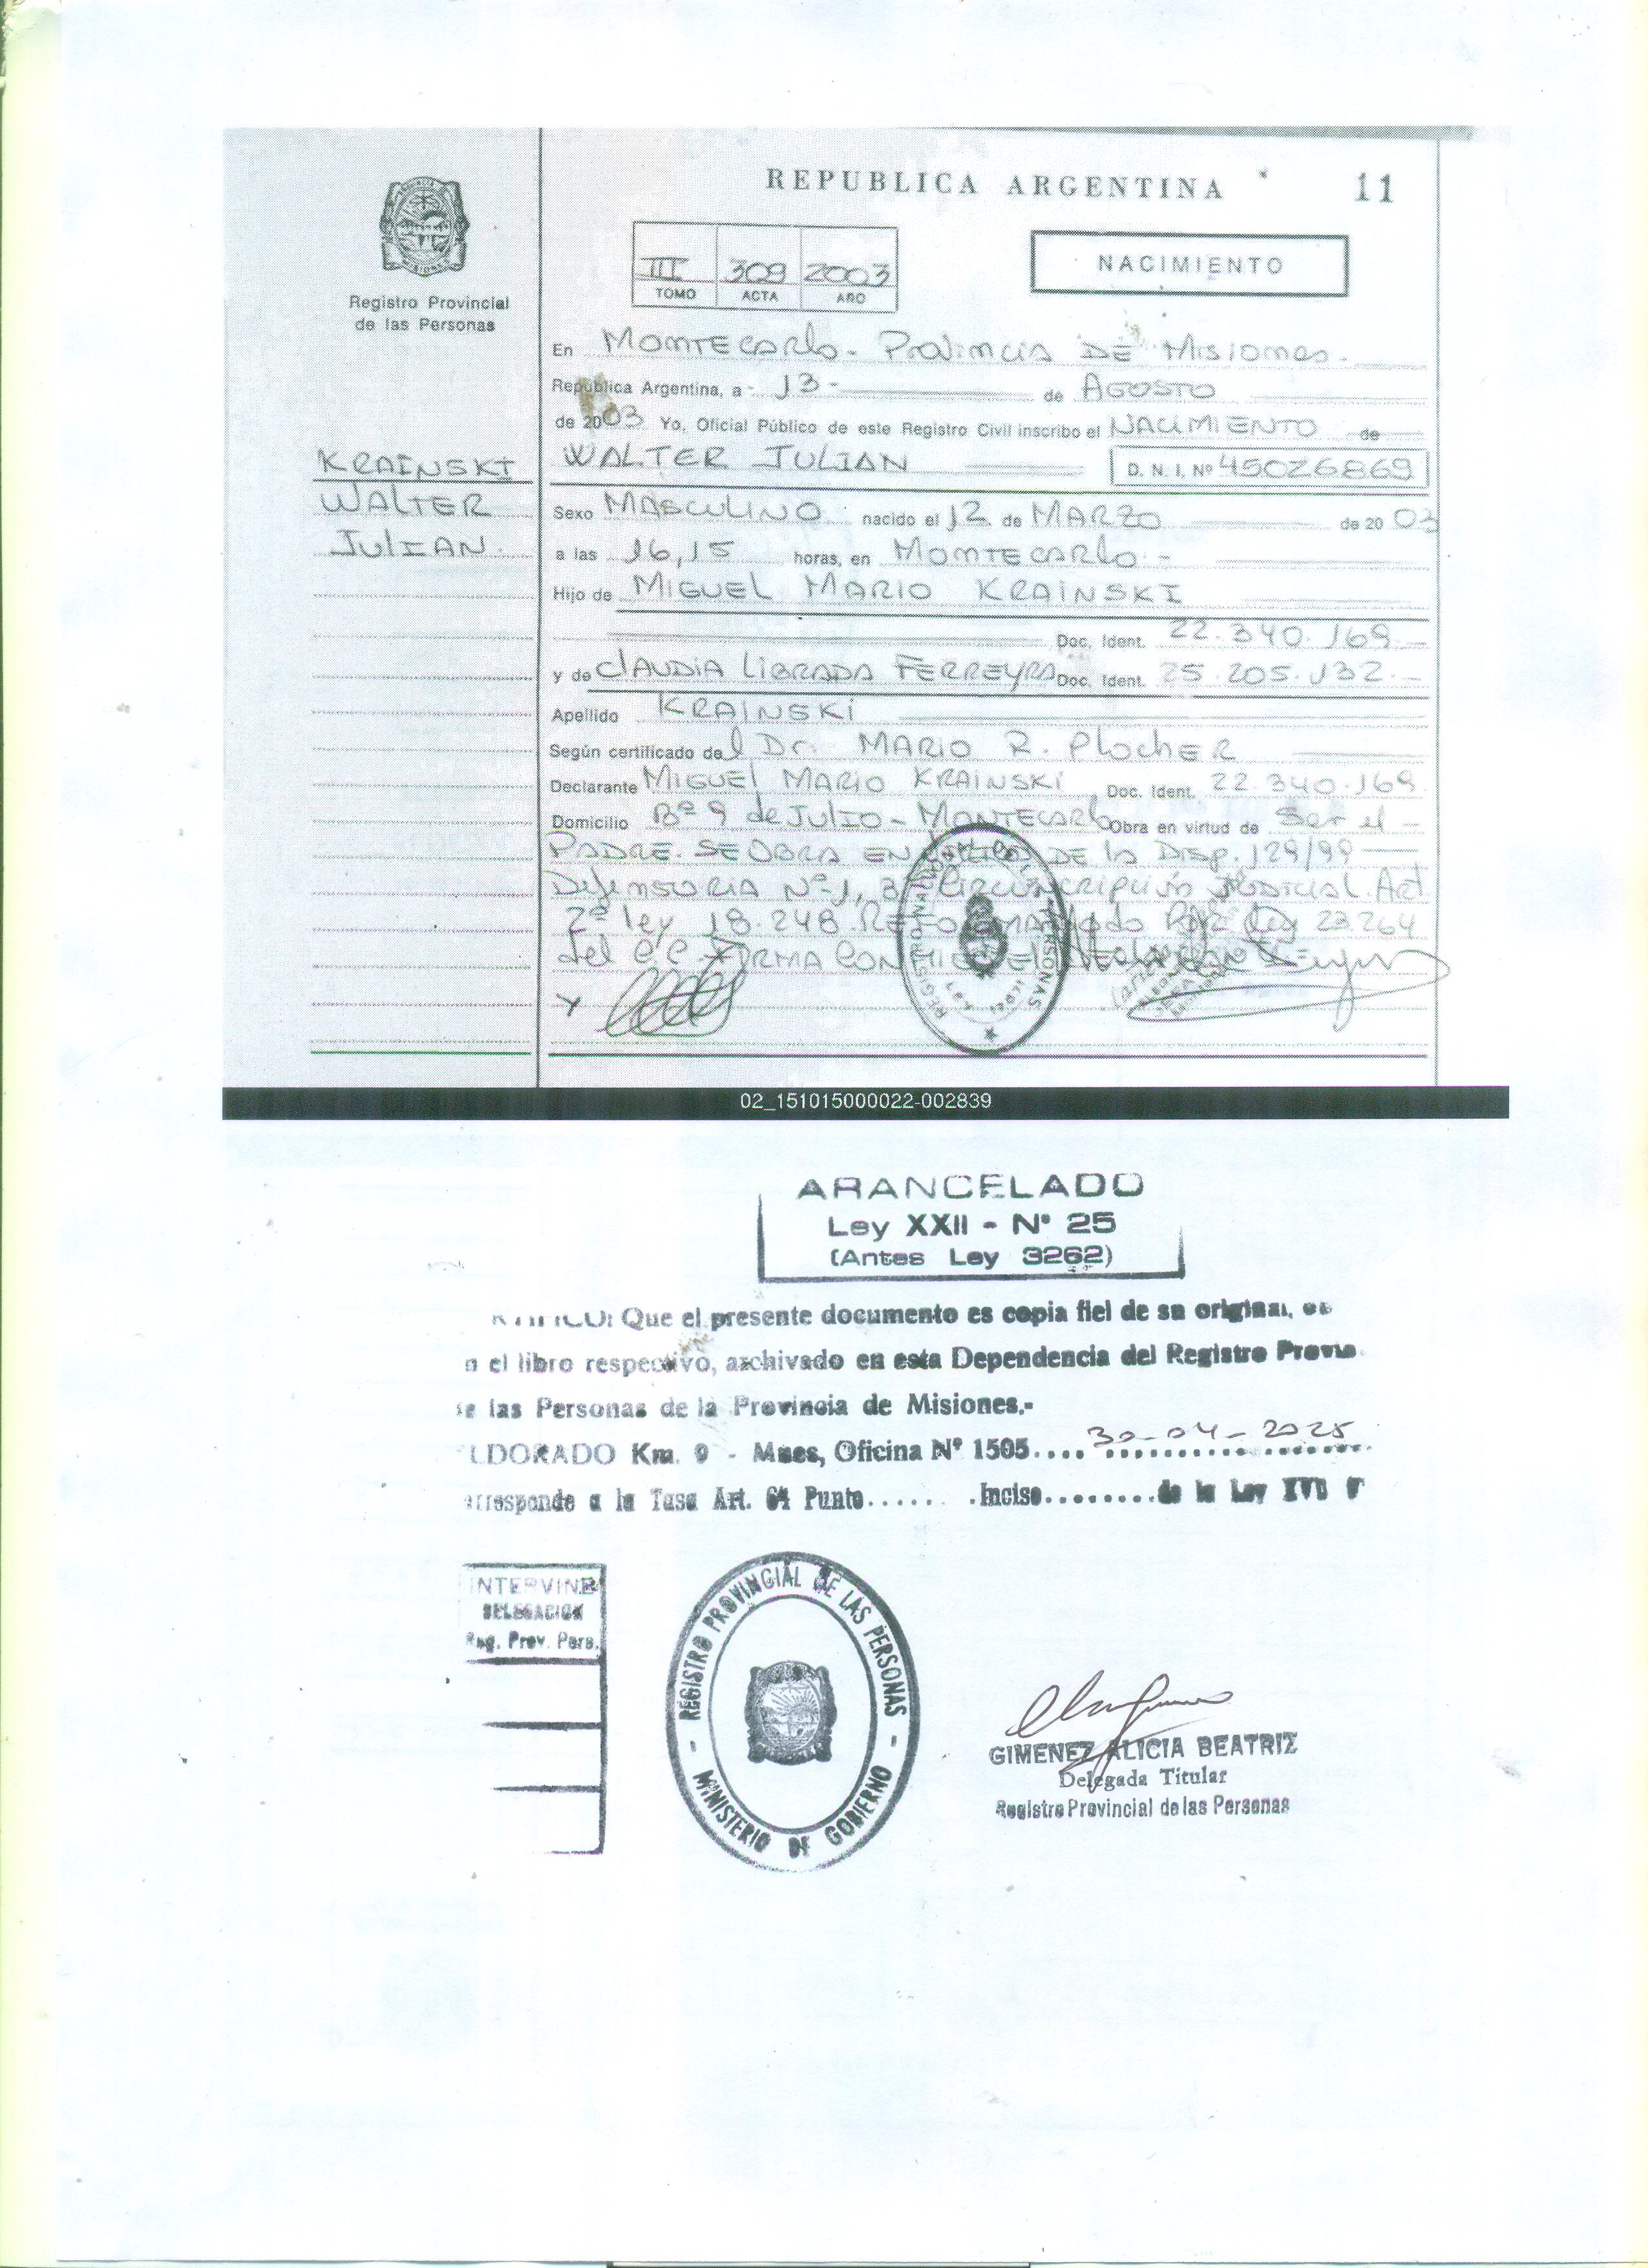 REPUBLICA ARGENTINA
11
Registro Provincial
de las Personas
III 309 2003
TOMO ACTA AÑO
NACIMIENTO
En Montecarlo - Provincia DE Misiones.
República Argentina, a - 13 - de AGOSTO
de 2003 Yo, Oficial Público de este Registro Civil inscribo el NACIMIENTO de
KRAINSKI
WALTER
JULIAN.
WALTER JULIAN D. N. I. Nº 45026869
Sexo MASCULINO nacido el 12 de MARZO de 20 03
a las 16,15 horas, en Montecarlo -
Hijo de MIGUEL MARIO KRAINSKI
Doc. Ident. 22.340.169.
y de CLAUDIA LIBRADA FERREYRA Doc. Ident. 25.205.132.
Apellido KRAINSKI
Según certificado del Dr. MARIO R. PlocHER
Declarante MIGUEL MARIO KRAINSKI Doc. Ident. 22.340.169
Domicilio Bº 9 de JULIO - MONTECARLO Obra en virtud de Ser el
PADRE. SE OBRA EN DE la Disp. 129/99
Defensoria Nº 1, 3ª Circunscripción Judicial. Art
2º ley 18.248. Reformado Por ley 23.264
del C.C. FIRMA CONMIGO EL
REGISTRO NACIONAL DE LAS PERSONAS
02_151015000022-002839
ARANCELADO
Ley XXII - Nº 25
(Antes Ley 3262)
Que el presente documento es copia fiel de su original,
el libro respectivo, archivado en esta Dependencia del Registro
las Personas de la Provincia de Misiones.-
LDORADO Km. 9 - Mnes, Oficina Nº 1505.... 30-04-2025
a la Tasa Art. 64 Punto...... .Inciso.........de la Ley XVII
INTERVINE
DELEGACION
Reg. Prov. Pers.
REGISTRO PROVINCIAL DE LAS PERSONAS
- MINISTERIO DE GOBIERNO -
GIMENEZ ALICIA BEATRIZ
Delegada Titular
Registro Provincial de las Personas